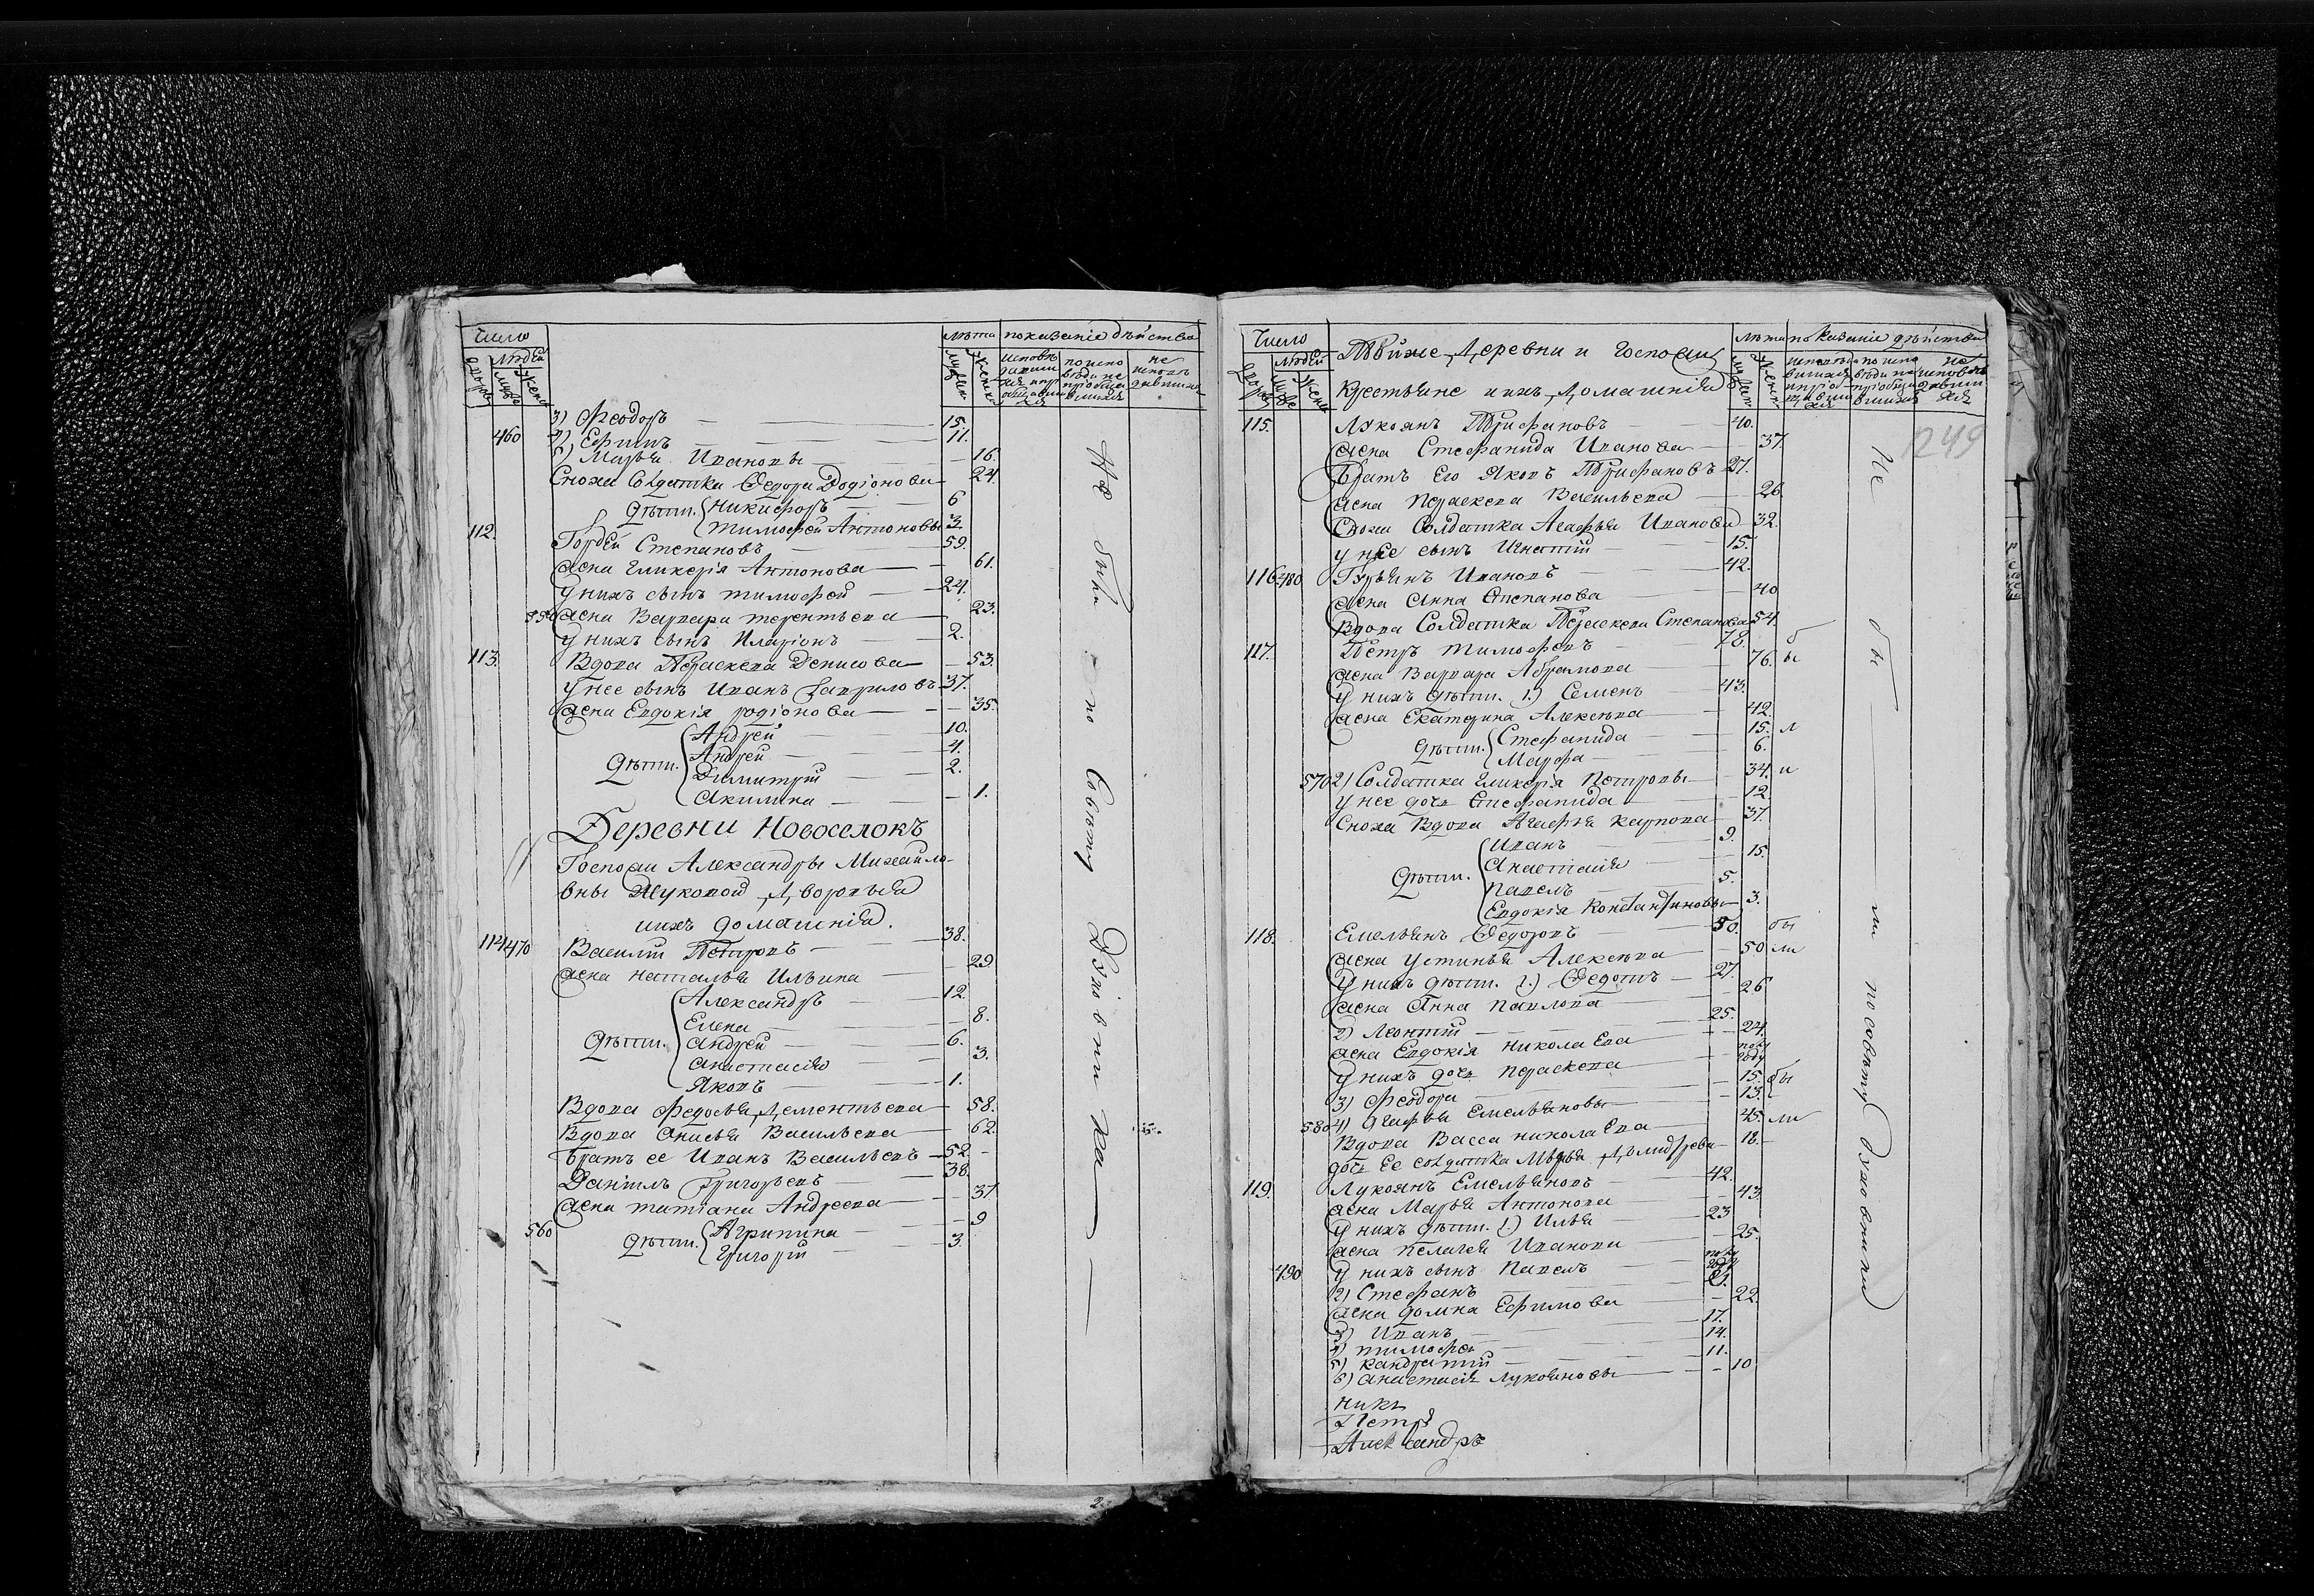 Число
людей
лѣта показанія дѣйства
3) Феодоръ 15.
460 4) Ефимъ 11.
5) Марья Ивановы 16.
Сноха Солдатка Федора Родіонова 24.
дѣти. Никифоръ 6
Тимофей Антоновы 3.
112. Гордей Степановъ 59.
жена Гликерія Антонова 61.
у нихъ сынъ Тимофей 24.
550 жена Варвара Терентьева 23.
у нихъ сынъ Иларіонъ 2.
113. Вдова Параскева Денисова 53.
у нее сынъ Иванъ Гавриловъ 37.
жена Евдокія Родіонова 35.
Андрей 10.
дѣти. Андрей 4.
Димитрій 2.
Акилина 1.
Деревни Новоселокъ
Госпожи Александры Михайло-
вны Жуковой Дворовыя
ихъ домашнія.
114. 470 Василій Петровъ 38.
жена Наталья Ильина 29.
Александръ 12.
Елена 8.
дѣти. Андрей 6.
Анастасія 3.
Яковъ 1.
Вдова Федосья Дементьева 58.
Вдова Анисья Васильева 62.
Братъ ее Иванъ Васильевъ 52.
Даніилъ Григорьевъ 38.
жена Татіана Андреева 37
560 дѣти. Агрипина 9
Григорій 3.
по Совѣту Духовника
Число
людей
Той же Деревни и Госпожи
Крестьяне ихъ Домашнія
лѣта показаніе дѣйства
1249
115. Лукоянъ Трифановъ 40.
жена Стефанида Иванова 37.
Братъ его Яковъ Трифановъ 27.
жена Параскева Васильева 26.
Сноха Солдатка Агафья Иванова 32.
у нее сынъ Игнатій 15.
116. 480 Гурьянъ Ивановъ 42.
жена Анна Степанова 40
Вдова Солдатка Параскева Степанова 54.
117. Петръ Тимофеевъ 78.
жена Варвара Абрамова 76.
у нихъ дѣти. 1.) Семенъ 43.
жена Екатерина Алексѣева 42.
дѣти. Стефанида 15.
Марфа 6.
570 2) Солдатка Гликерія Петровы 34.
у нее дочь Стефанида 12.
Сноха Вдова Агафья Карпова 37.
Иванъ 9.
дѣти. Анастасія 15.
Павелъ 5.
Евдокія Константиновы 3.
118. Емельянъ Федоровъ 50.
жена Устинья Алексѣева 50
у нихъ дѣти. 1.) Федотъ 27.
жена Анна Павлова 26
2) Леонтій 25.
жена Евдокія Николаева 24.
у нихъ дочь Параскева полу году
3) Феодора 15.
580 4) Агафья Емельяновы 13.
Вдова Васса Николаева 45.
дочь ее солдатка Марья Дмитрева 18.
119. Лукоянъ Емельяновъ 42.
жена Марья Антонова 43.
у нихъ дѣти. 1.) Илья 23
жена Пелагея Иванова 25.
490 у нихъ сынъ Павелъ полу году
2) Стефанъ 21.
жена Домна Ефимова 22.
3) Иванъ 17.
4) Тимофей 14.
5) Кандратій 11.
6) Анастасія Лукояновы 10
Никъ
Петръ
Александръ
Не бы ли по совѣту Духовника